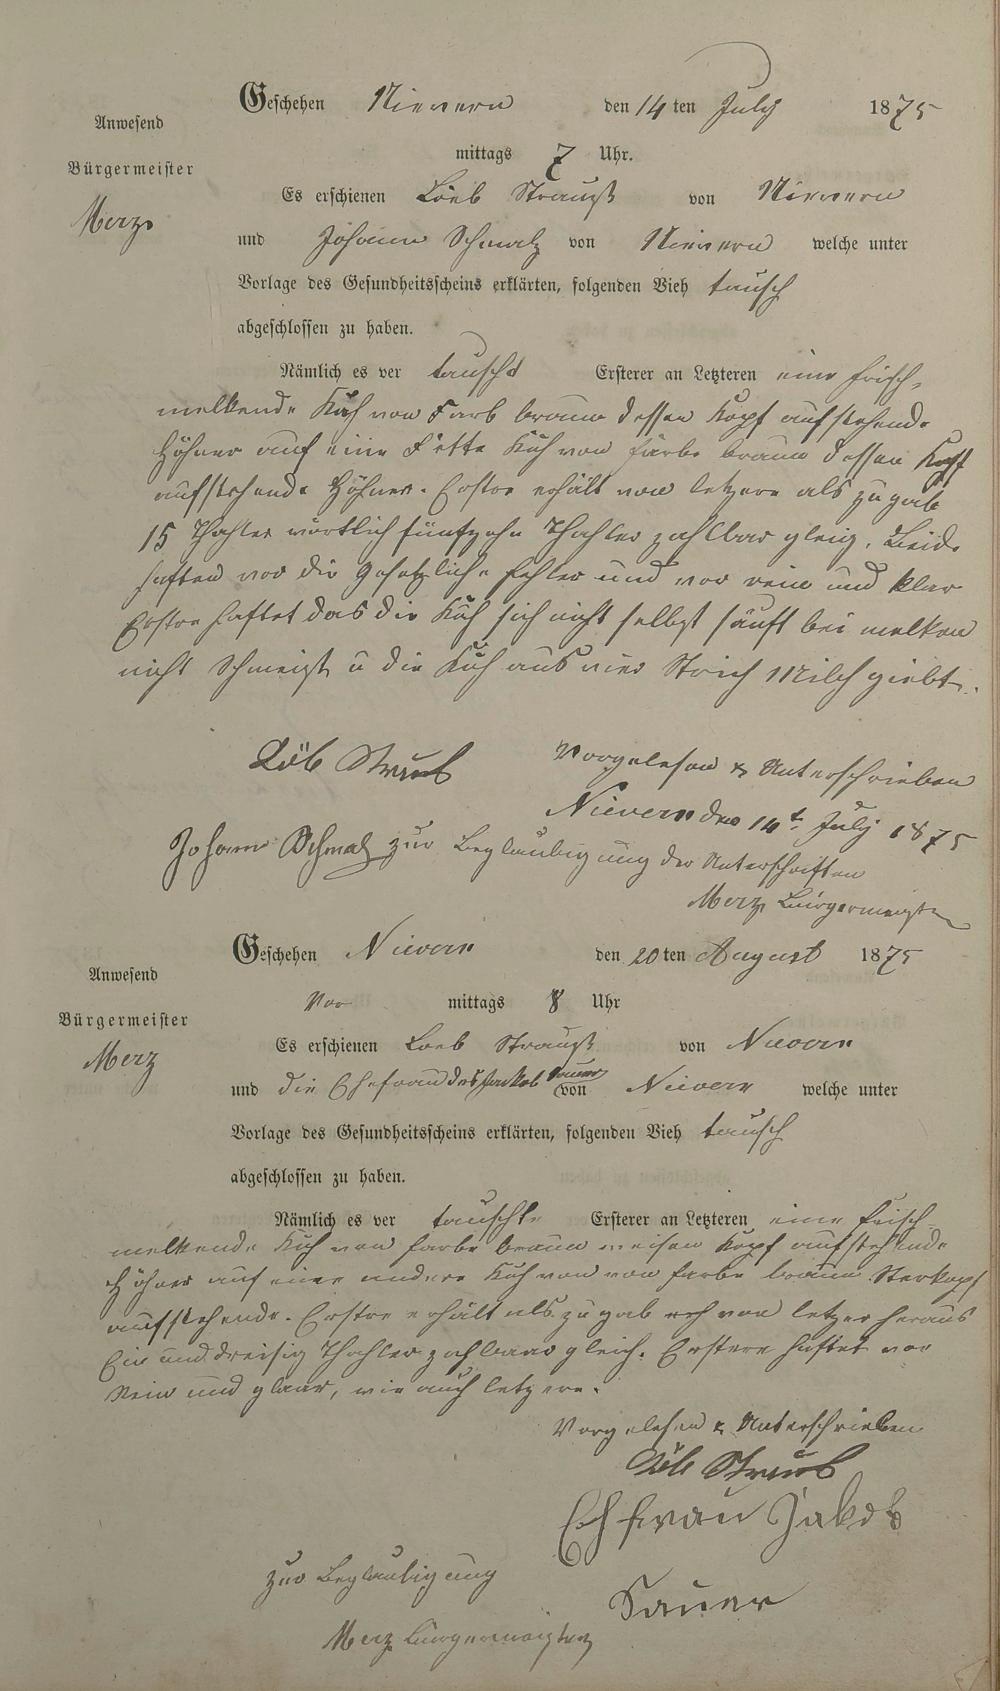 Geschehen Nievern den 14 ten July 1875
Anwesend
mittags 7 Uhr.
Bürgermeister
Es erschienen Löeb Strauß von Nievern
Merz
und Johann Schmalz von Nievern welche unter
Vorlage des Gesundheitsscheins erklärten, folgenden Vieh tausch
abgeschlossen zu haben.
Nämlich es ver tauscht Ersterer an Letzteren eine frisch-
melkende Kuh von Farb braun dessen Kopf aufstehende
Höhner auf eine Fette Kuh von farbe braun dessen Kopf
aufstehende Höhner. Erstre erhält von letzere als zugab
15 Thahler wörtlich fünfzehn Thahler zahlbar gleig. Beide
haften vor die Gesetzliche fehler und vor rein und klar
Erstre haftet das die Kuh sich nicht selbst säuft bei melken
nicht Schmeigst u die Kuh aus vier Strich Milch giebt.
Löb Straus Vorgelesen & Unterschrieben
Nievern den 14t July 1875
Johann Schmalz zur Beglaubigung der Unterschriften
Merz Bürgermeister
Geschehen Nievern den 20 ten August 1875
Anwesend
Vor mittags 8 Uhr
Bürgermeister
Es erschienen Loeb Strauß von Nievern
Merz
und die Ehefrau des Jackob Sauer von Nievern welche unter
Vorlage des Gesundheitsscheins erklärten, folgenden Vieh tausch
abgeschlossen zu haben.
Nämlich es ver tauschte Ersterer an Letzteren eine frisch-
melkende Kuh von farbe braun weisen Kopf aufstehende
Höhner auf eine andere Kuh von von farbe braun Sterkopf
aufstehende. Erstre erhält als zugab von letzer heraus
Ein und dreisig Thahler zahlbaar gleich. Erstere haftet vor
Rein und glaar, wie auch letzere.
Vorgelesen & Unterschrieben
Löb Straus
Ehfrau Jakob
zur Beglaubigung
Sauer
Merz Bürgermeister